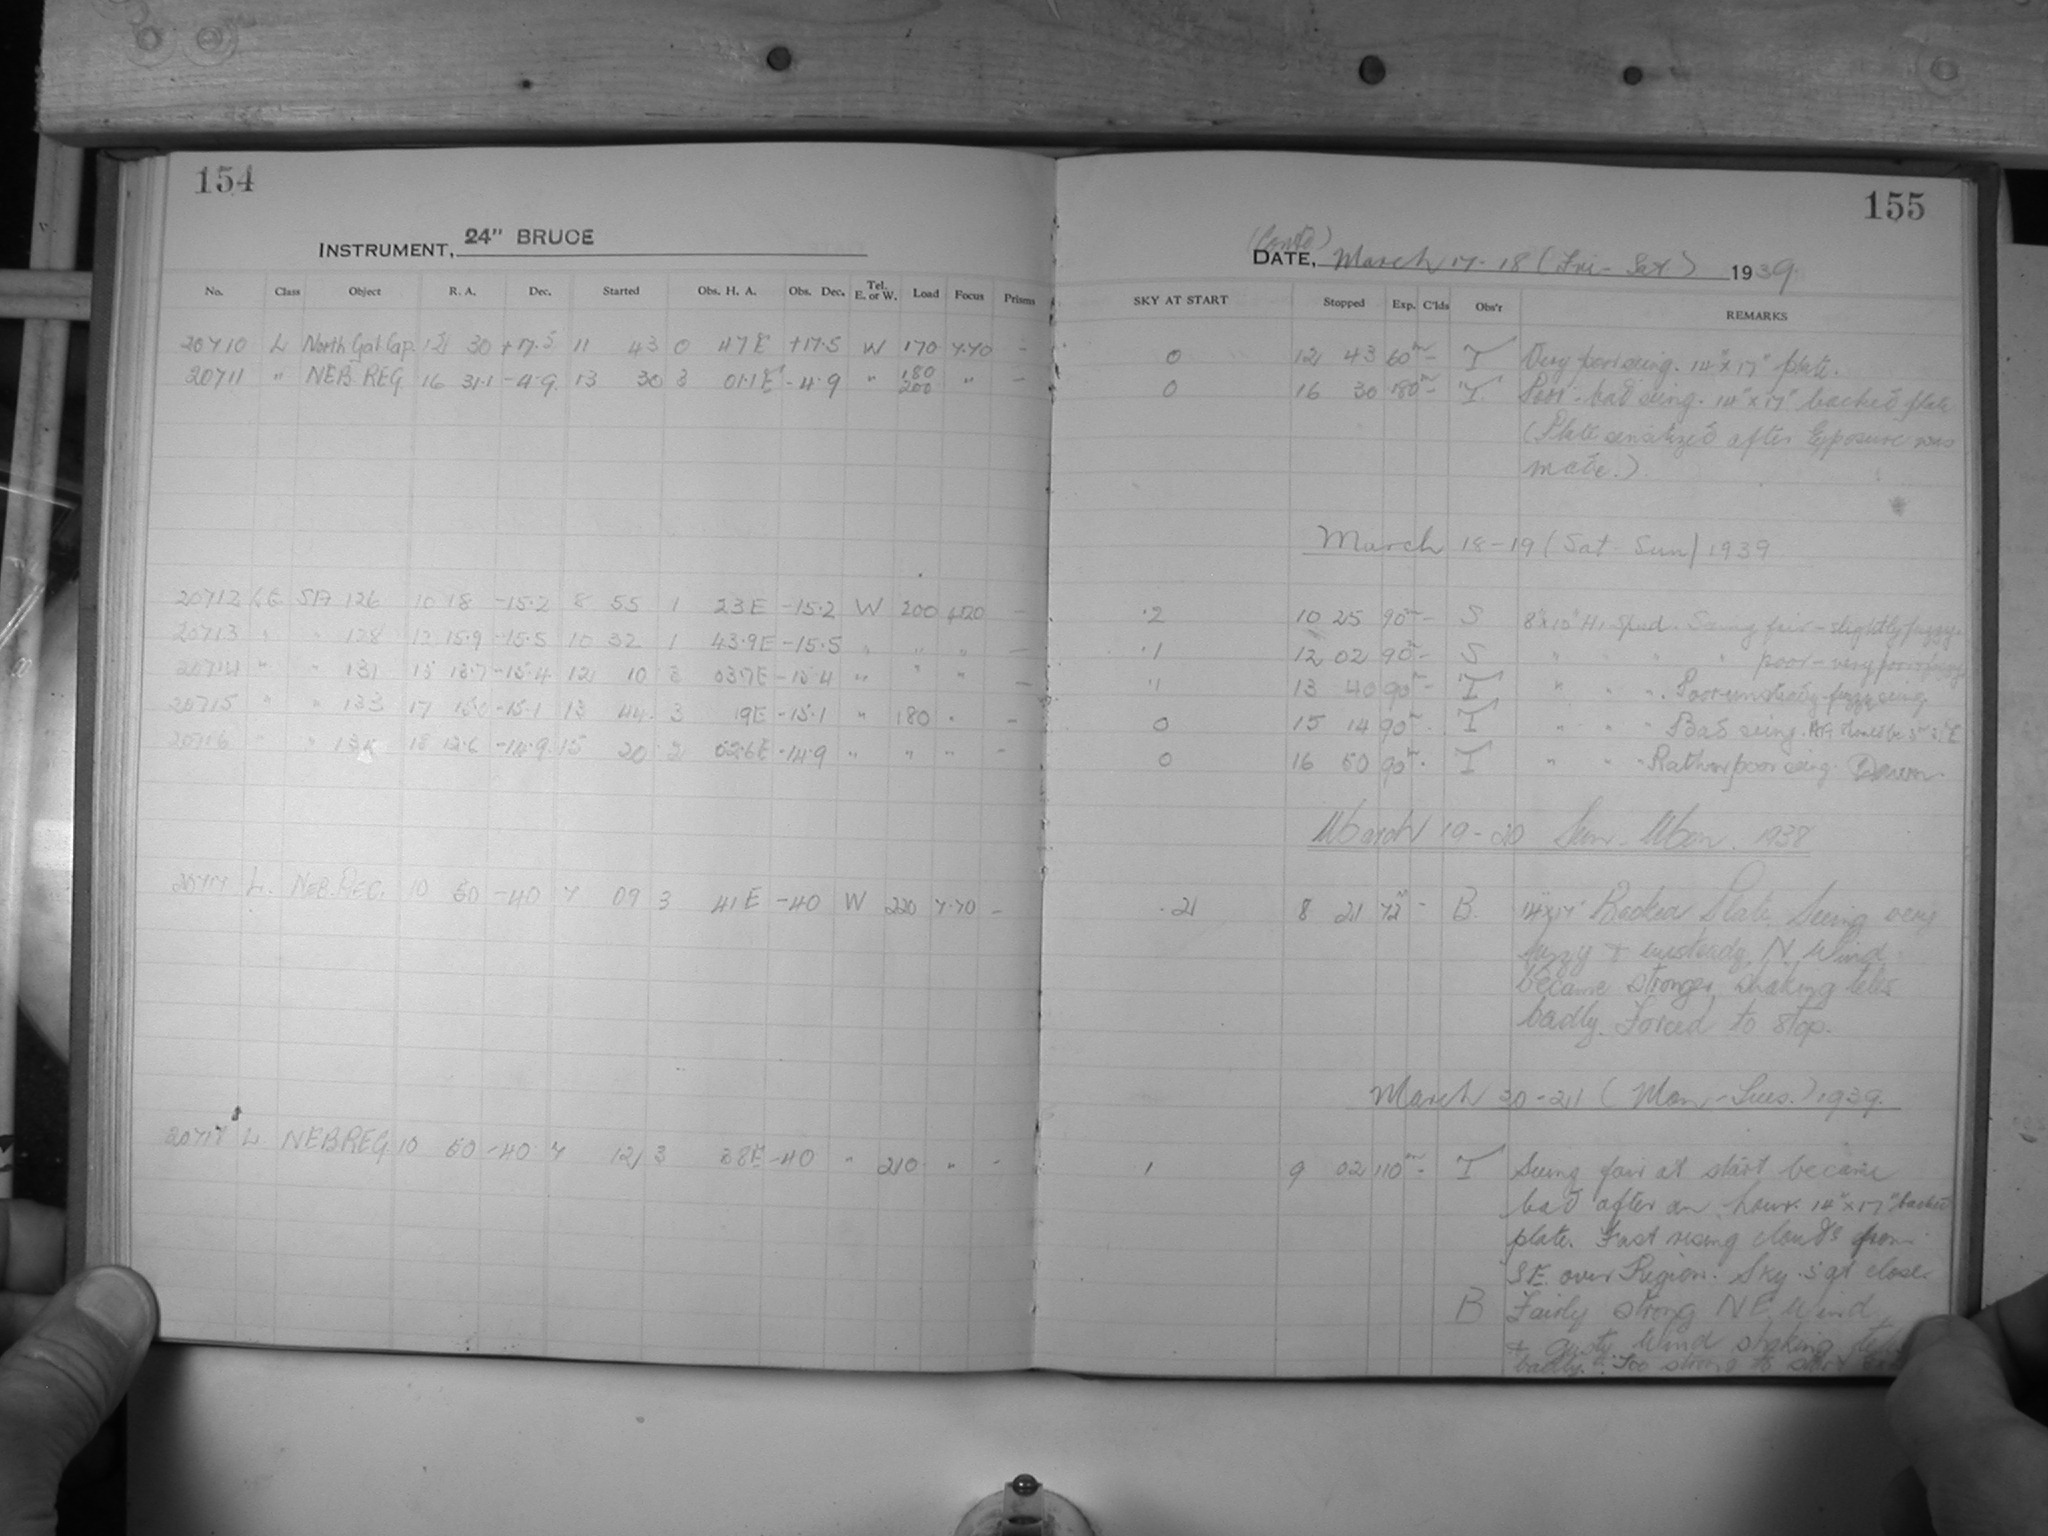 154
INSTRUMENT, 24" BRUCE
No. Class Object R. A. Dec. Started Obs. H. A. Obs. Dec. Tel. E. or W. Load Focus Prisms
20710 L North Gal Cap. 12 30 +17.5 11 43 0 47E +17.5 W 170 7.70 -
20711 " NEB. REG 16 31.1 -4.9. 13 30 3 01.1E -4.9 " 180 200 " -
20712 SA 126 10 18 -15.2 8 55 1 23E -15.2 W 200 -
20713 " " 128 12 15.9 -15.5 10 32 1 43.9E -15.5 " " " -
20714 " " 131 15 13.7 -15.4 12 10 3 03.7E -15.4 " " " -
20715 " " 133 17 -15.1 13 44 3 19E -15.1 " 180 " -
20716 " " 18 12.6 -14.9 15 20 2 52.6E -14.9 " " " -
20717 L. NEB. REG. 10 50 -40 7 09 3 41E -40 W 220 7.70 -
20718 L. NEB REG. 10 50 -40 7 12 3 38E -40 " 210 " -
155
(Cont'd)
DATE, March 17-18 (Fri-Sat) 1939
SKY AT START Stopped Exp. C'lds Obs'r REMARKS
0 12 43 60m - T Very poor seeing. 14"x17" plate.
0 16 30 180m - T. Poor-bad seeing. 14"x17" backed plate
(Plate sensitized after Exposure was
made.)
March 18-19 (Sat-Sun) 1939
.2 10 25 90m - S 8"x10" Hi. Speed. Seeing fair - slightly fuzzy.
.1 12 02 90m - S " " " " poor - very poor
.1 13 40 90m - T " " " Poor-unsteady-fuzzy seeing
0 15 14 90m - T " " " Bad seeing.
0 16 50 90m - T " " " Rather poor seeing. Dawn.
March 19-20 Sun-Mon. 1938
.2 8 21 72m - B. 14x17" Backed Plate. Seeing very
fuzzy + unsteady. N. Wind
became stronger, shaking tele
badly. Forced to stop.
March 20-21 (Mon-Tues.) 1939.
1 9 02 110m - T Seeing fair at start became
bad after an hour. 14"x17" backed
plate. Fast rising clouds from
S.E. over Region. Sky .5 at close.
B Fairly strong NE Wind
+ gusty. Wind shaking tele
badly. Too strong to start